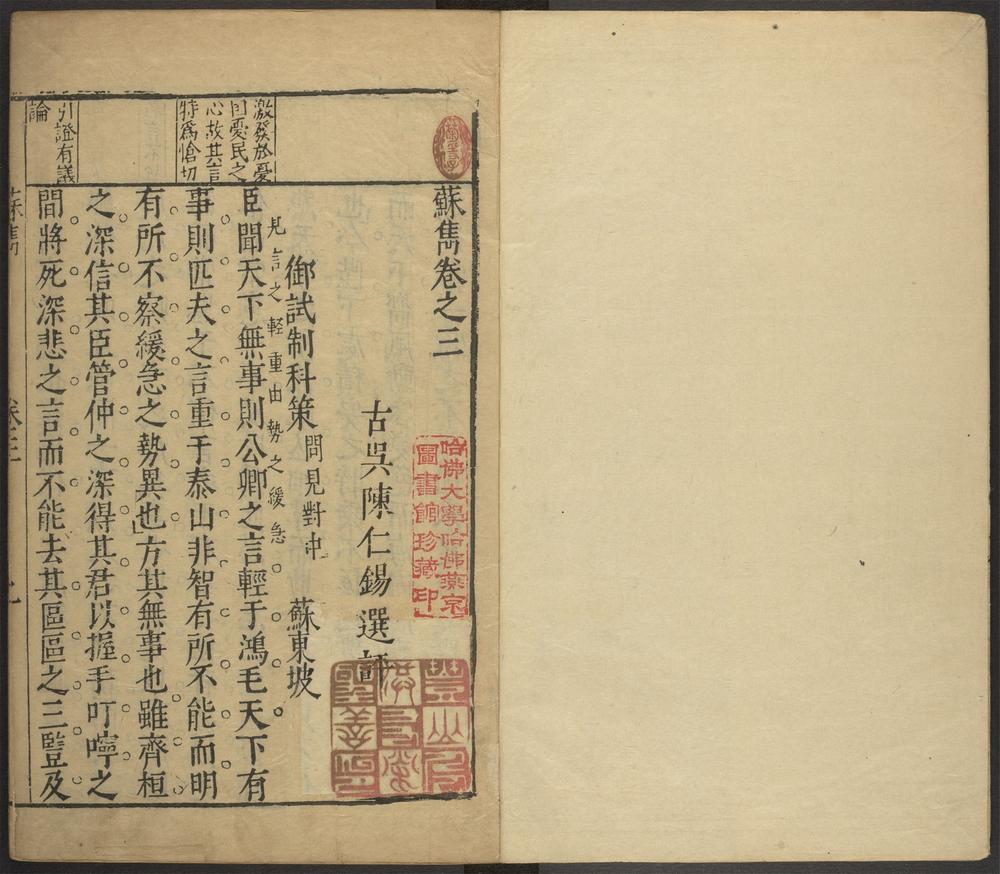 蘇雋卷之三
古吳陳仁錫選評
御試制科策 問見對中 蘇東坡
見言之輕重由勢之緩急
臣聞天下無事則公卿之言輕于鴻毛天下有
事則匹夫之言重于泰山非智有所不能而明
有所不察緩急之勢異也方其無事也雖齊桓
之深信其臣管仲之深得其君以握手叮嚀之
間將死深悲之言而不能去其區區之三豎及
激發於憂
心故其言
特為愴切
引證有議
論
哈佛大學哈佛燕京
圖書館珍藏印
蘇雋
卷三